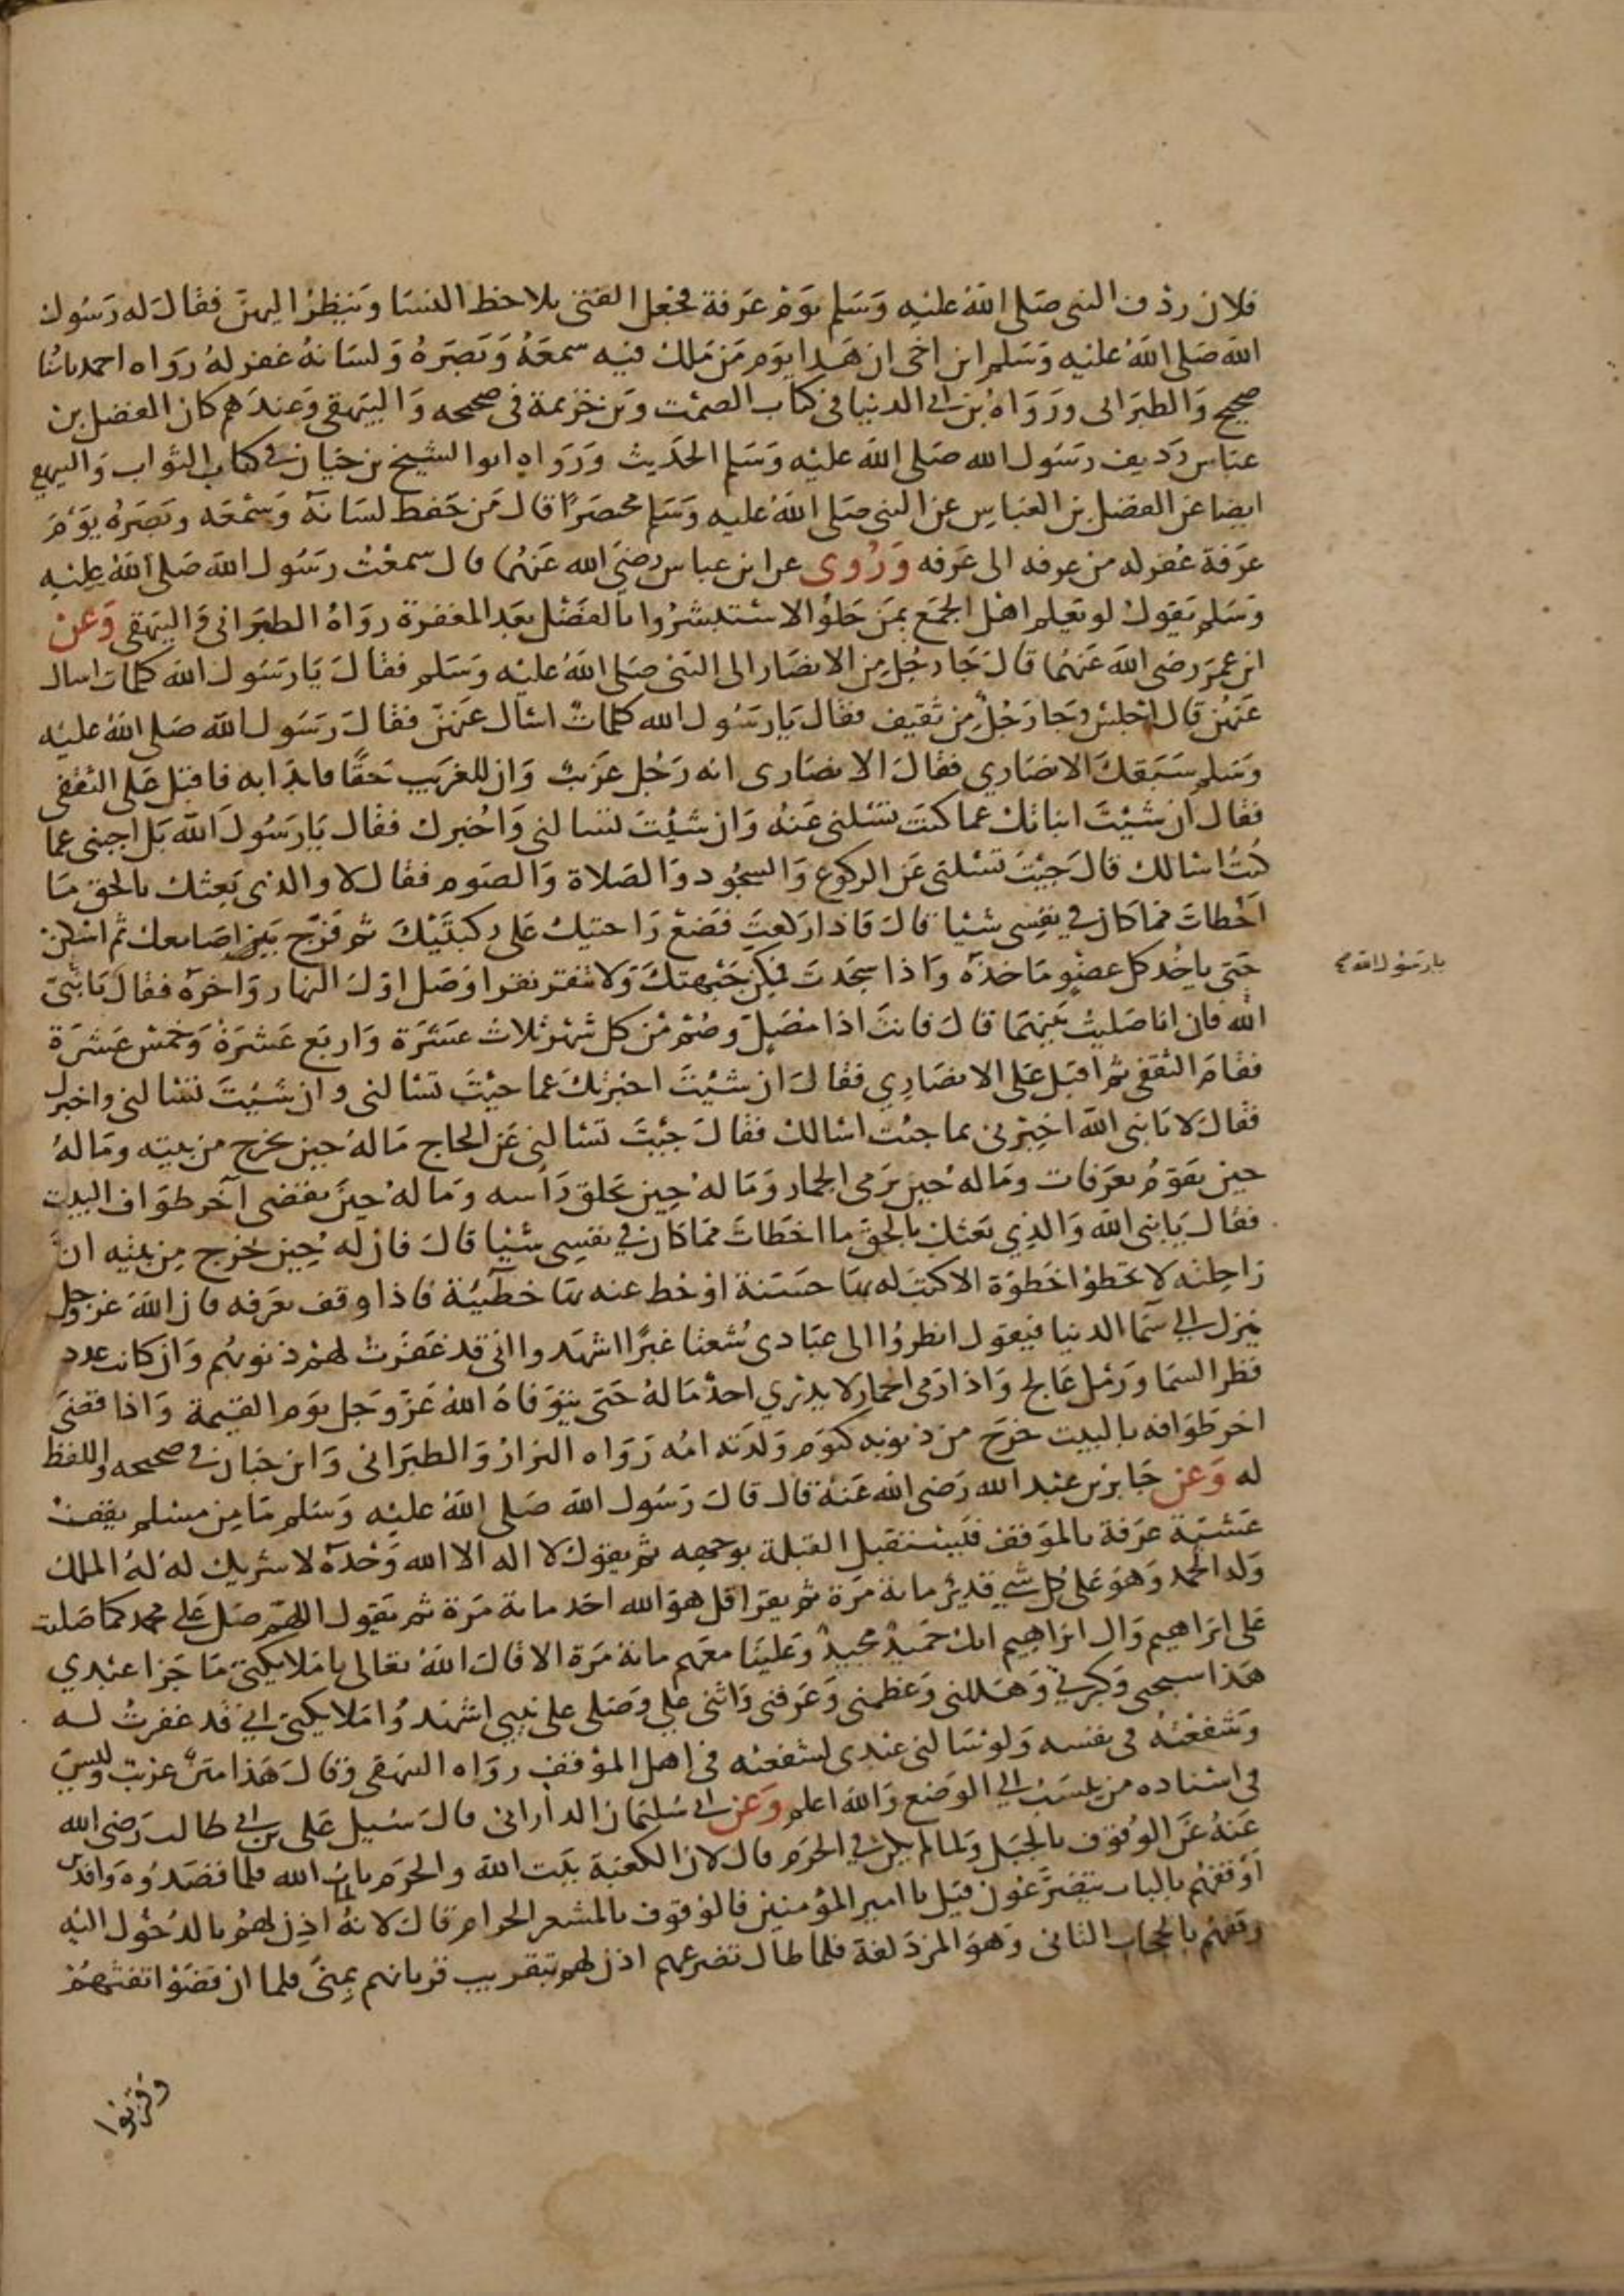 فلان ردف النبي صَلى اللهُ عليه وَسَلم يوَم عَرفة فجعل الفتى يلاحظ النسَا وَينظرُ اليهن فقال له رَسُول
الله صَلى اللهُ عليه وَسَلم ابن اخى ان هَذا يوَم مَن مَلك فيه سمعَهُ وَبَصَرهُ وَلسَانهُ غفر لهُ رَوَاه احمد باسنا
صحيح وَالطبَرانى ورَوَاهُ بن ابي الدنيا في كتاب الصَّمت وَبن خزيمة فى صحيحه وَالبيهقى وَعندَهم كان الفضل بن
عباس رَديف رسَول الله صَلى اللهَ عليه وَسَلم الحديث وَرَوَاه ابوا الشيخ بن حَيان في كتاب الثواب وَالبيهقي
ايضا عَن الفضل بن العَباس عن النبي صَلى اللهُ عليه وَسَلم مختصَرًا قال مَن حَفظ لسَانهَ وَسَمْعَه وبَصَرهُ يوَمَ
عَرَفة غفر له من عرفه الى عَرفه وَرُوى عن ابن عباس رضيَ الله عَنهُما قال سمعْتُ رسَول الله صَلى اللهُ عليه
وَسَلم يَقول لو يَعلم اهل الجمَع بمَن حَلوُا لاستبشرُوا بالفضل بعَد المغفرة روَاهُ الطبَرانى وَالبيَهقى وَعن
ابن عمَرَ رضى اللهَ عَنهُما قال جَا رجُل مِن الانصَار الى النبي صَلى اللهُ عليه وَسَلم فقال يَا رسَول الله كلمات اسال
عَنهُن قال اجلسْ وجَا رَجُلٌ مِن ثقيف فقال يَا رسَول الله كلمات اسأل عَنهن فقال رَسَول الله صَلى اللهُ عليه
وَسَلم سَبَقك الانصَاري فقال الانصَارى انه رَجُل عزيب وَان للغريب حَقًا فابدَا به فاقبل عَلى الثقفى
فقال ان شيْتَ انباتك عما كنت تسْلنى عَنه وَان شيْتَ تسَالنى وَاخبرك فقال يَا رسَول الله بَل اجبنى عما
كنت اسَالك قال جَيْتَ تسْلنى عَن الركوع وَالسجُود وَالصَلاة وَالصَوم فقال لا والذى بَعثك بالحق مَا
اخطات مما كان في نفسى شيْا قال فاذا ركعتَ فضَعْ رَاحتيك عَلى ركبتَيْكَ ثم فرّج بَين اصَابعك ثم اسْكن
حَتى ياخُد كل عضوٍ مَاخذه وَاذا سجَدتَ فمكن جَبْهتكَ وَلا تنقر نقرا وَصَل اوّلَ النهَار وَاخره فقال يَا نبيّ
الله فان انا صَليت بَينهمَا قال فانت اذا مصَلٍّ وصُمْ مْن كل شهْر ثلاث عشَرَة وَاربَع عَشرَةَ وَخمْسَ عَشرَة
فقامَ الثقفى ثم اقبل عَلى الانصَاري فقال ان شيْتَ اخبرتكَ عما جيْتَ تسَالنى وان شيْتَ تسَالنى واخبرك
فقال لا يَا نبى الله اخبرنى بما جئت اسْالك فقال جيْتَ تسَالنى عَن الحاج مَا لهُ حين يخرج من بيته ومَا لهُ
حين يقوَم بعَرَفات ومَا له حين يَرمى الجمار وَمَا لهُ حين يحلق رَاسه وَما لهُ حين يَقضى آخر طوَاف البيت
فقال يَا نبى الله وَالذي بَعثك بالحق ما اخطات مما كان في نفسى شيْا قال فان له حين خرج مِن بيته انّ
رَاحلته لا تخطوْا خطوَة الا كتب له بهَا حسَنة اوْ حُط عنه بهَا خطيّة فاذا وقف بعَرَفه فان الله عَز وَجل
ينزل الي سَمَا الدنيا فيَقول انظروُا الى عبَادى شُعثا غبرًا اشهَدوا انى قد غفرت لهمْ ذنوبهُم وَان كانت عدد
قطر السمَا وَرَمْل عَالج وَاذا رَمى الجمارَ لا يدْري احدٌ مَا لهُ حَتى يتوَفاهُ اللهُ عَزّ وَجل يوَم القيمة وَاذا قضَى
اخر طوَافه بالبيت خرَج من ذنوبه كيوَم وَلدته امُه رَوَاه البزار وَالطبرَانى وَابن حبان فى صحيحه واللفظ
له وَعن جَابر بن عبْد الله رَضى الله عَنهُ قال قال رَسُول الله صَلى اللهُ عليه وَسَلم مَا مِن مسْلم يقفُ
عَشيّة عَرَفة بالموَقف فلبيستقبل القبلة بوَجهه ثم يقوَل لا اله الا الله وَحْدَه لا شريك لهُ لهُ الملك
وَله الحمد وَهوَ عَلى كل شي قديرٌ مائة مَرّة ثم يقرَا قل هوَ الله احَد مائة مَرة ثم يَقول اللهمّ صَل عَلى محمد كما صَليت
عَلى ابرَاهيم وَال ابرَاهيم انك حَميدٌ مجيدٌ وَعلينَا معَهم مائة مَرة الا قال اللهُ تعَالى يا مَلايكتي مَا جَزا عبْدي
هَذا سبحى وَكبرني وَهَللنى وَعَظمنى وَعَرفنى وَاثنى علي وَصَلى على نبيي اشهَدُوا مَلايكتى اني قد غفرتُ له
وَشفعْتهُ فى نفسه وَلو سَالنى عبْدى لشفعته في اهل الموْقف روَاه البيهقى وَقال هَذا متنٌ غريب وَليسَ
فى اسْناده من ينسَب الي الوَضع وَالله اعلم وَعَن ابي سُليمَان الدارانى قال سُيل عَلى بن ابي طالب رَضى الله
عَنهُ عَن الوُقوف بالجبَل وَلما لم يكن في الحرَم قال لان الكعبَة بَيت الله والحرَم باب الله فلما قصَدُوه وَافدين
اوقفهُم بالباب يتضرّعون قيل يا امير المؤمنين فالوقوف بالمشعر الحرام قال لانهُ لما اذن لهمُ بالدُخول اليْه
وقفهُم بالحجاب الثانى وَهوَ المزدَلفة فلما طال تضرعهم اذن لهم بتقريب قربانهم بِمنىً فلما ان قضوَا تفثهُمْ
يا رسَول الله
وقربوا